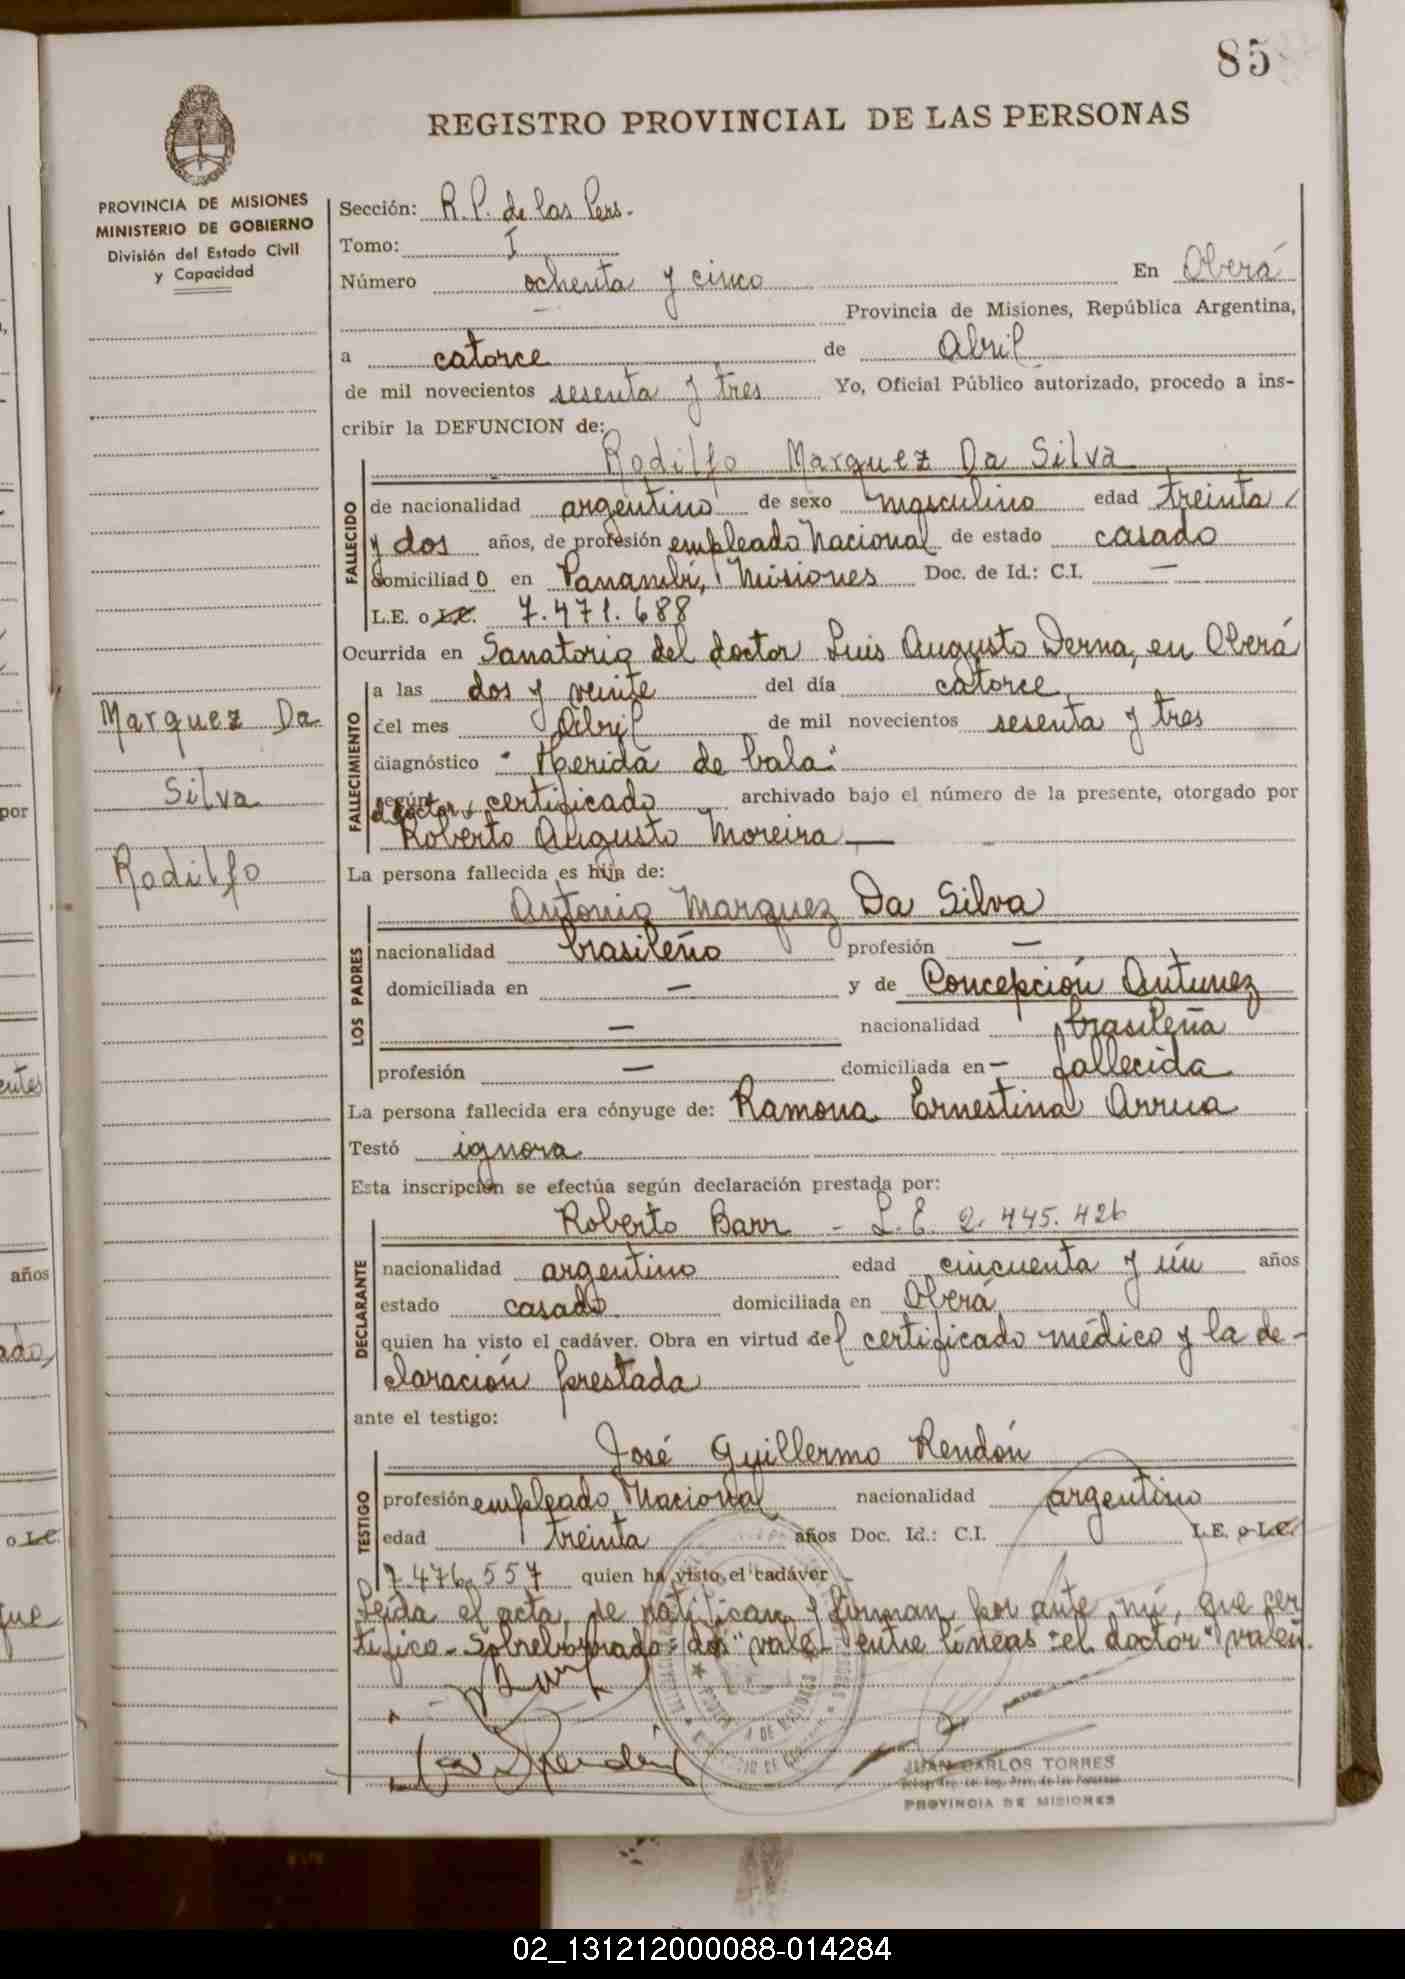 85
REGISTRO PROVINCIAL DE LAS PERSONAS
PROVINCIA DE MISIONES
MINISTERIO DE GOBIERNO
División del Estado Civil
y Capacidad
Sección: R.P. de las Pers.
Tomo: I
Número ochenta y cinco En Oberá
Provincia de Misiones, República Argentina,
a catorce de Abril
de mil novecientos sesenta y tres Yo, Oficial Público autorizado, procedo a ins-
cribir la DEFUNCION de:
Rodilfo Marquez Da Silva
FALLECIDO
de nacionalidad argentino de sexo masculino edad treinta
y dos años, de profesión empleado Nacional de estado casado
domiciliado en Panambí, Misiones Doc. de Id.: C.I. —
L.E. o L.C. 7.471.688
Ocurrida en Sanatorio del doctor Luis Augusto Derna, en Oberá
FALLECIMIENTO
a las dos y veinte del día catorce
del mes Abril de mil novecientos sesenta y tres
diagnóstico "Herida de bala"
según certificado archivado bajo el número de la presente, otorgado por
el doctor Roberto Augusto Moreira —
Marquez Da
Silva
Rodilfo
La persona fallecida es hijo de:
Antonio Marquez Da Silva
LOS PADRES
nacionalidad brasileño profesión —
domiciliada en — y de Concepción Antunez
— nacionalidad brasileña
profesión — domiciliada en — fallecida
La persona fallecida era cónyuge de: Ramona Ernestina Arrua
Testó ignora
Esta inscripción se efectúa según declaración prestada por:
Roberto Barr - L.E. 2.445.426
DECLARANTE
nacionalidad argentino edad cincuenta y ún años
estado casado domiciliada en Oberá
quien ha visto el cadáver. Obra en virtud del certificado médico y la de-
claración prestada
ante el testigo:
José Guillermo Rendón
TESTIGO
profesión empleado Nacional nacionalidad argentino
edad treinta años Doc. Id.: C.I. L.E. o L.C.
7.476.557 quien ha visto el cadáver -
Leida el acta, se ratifican y firman por ante mí, que cer
tifico - Sobreborrado = dos "vale" entre líneas = el doctor" valen.
JUAN CARLOS TORRES
PROVINCIA DE MISIONES
por
entes
años
ado,
o L.C.
que
02_131212000088-014284